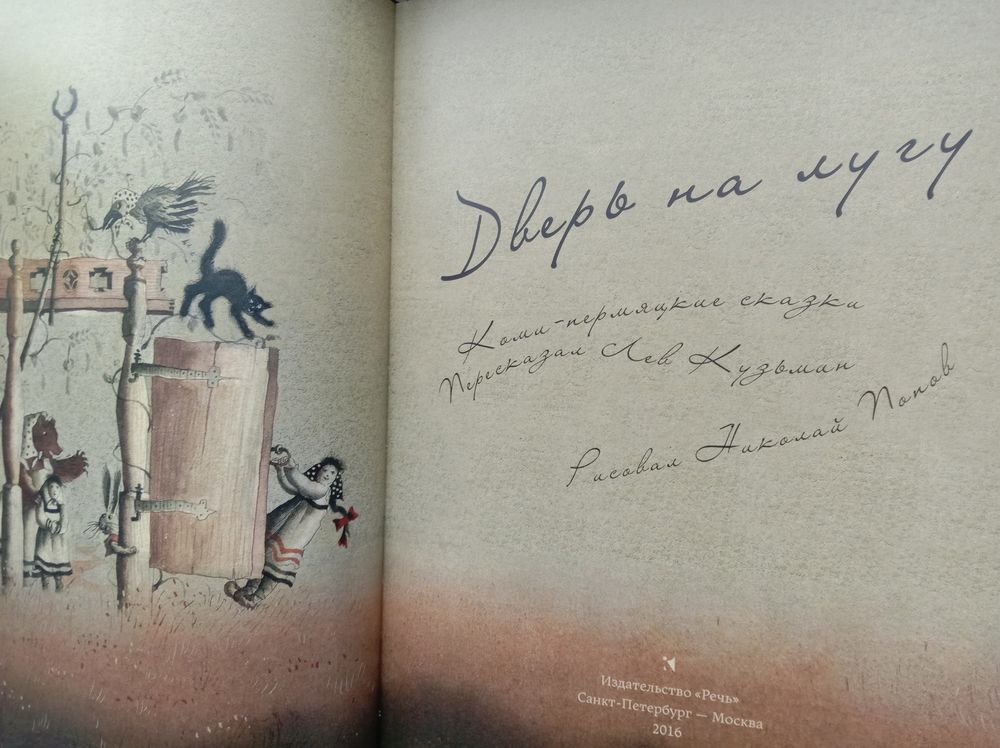 Дверь на лугу
Коми-пермяцкие сказки
Пересказал Лев Кузьмин
Рисовал Николай Попов
Издательство «Речь»
Санкт-Петербург — Москва
2016